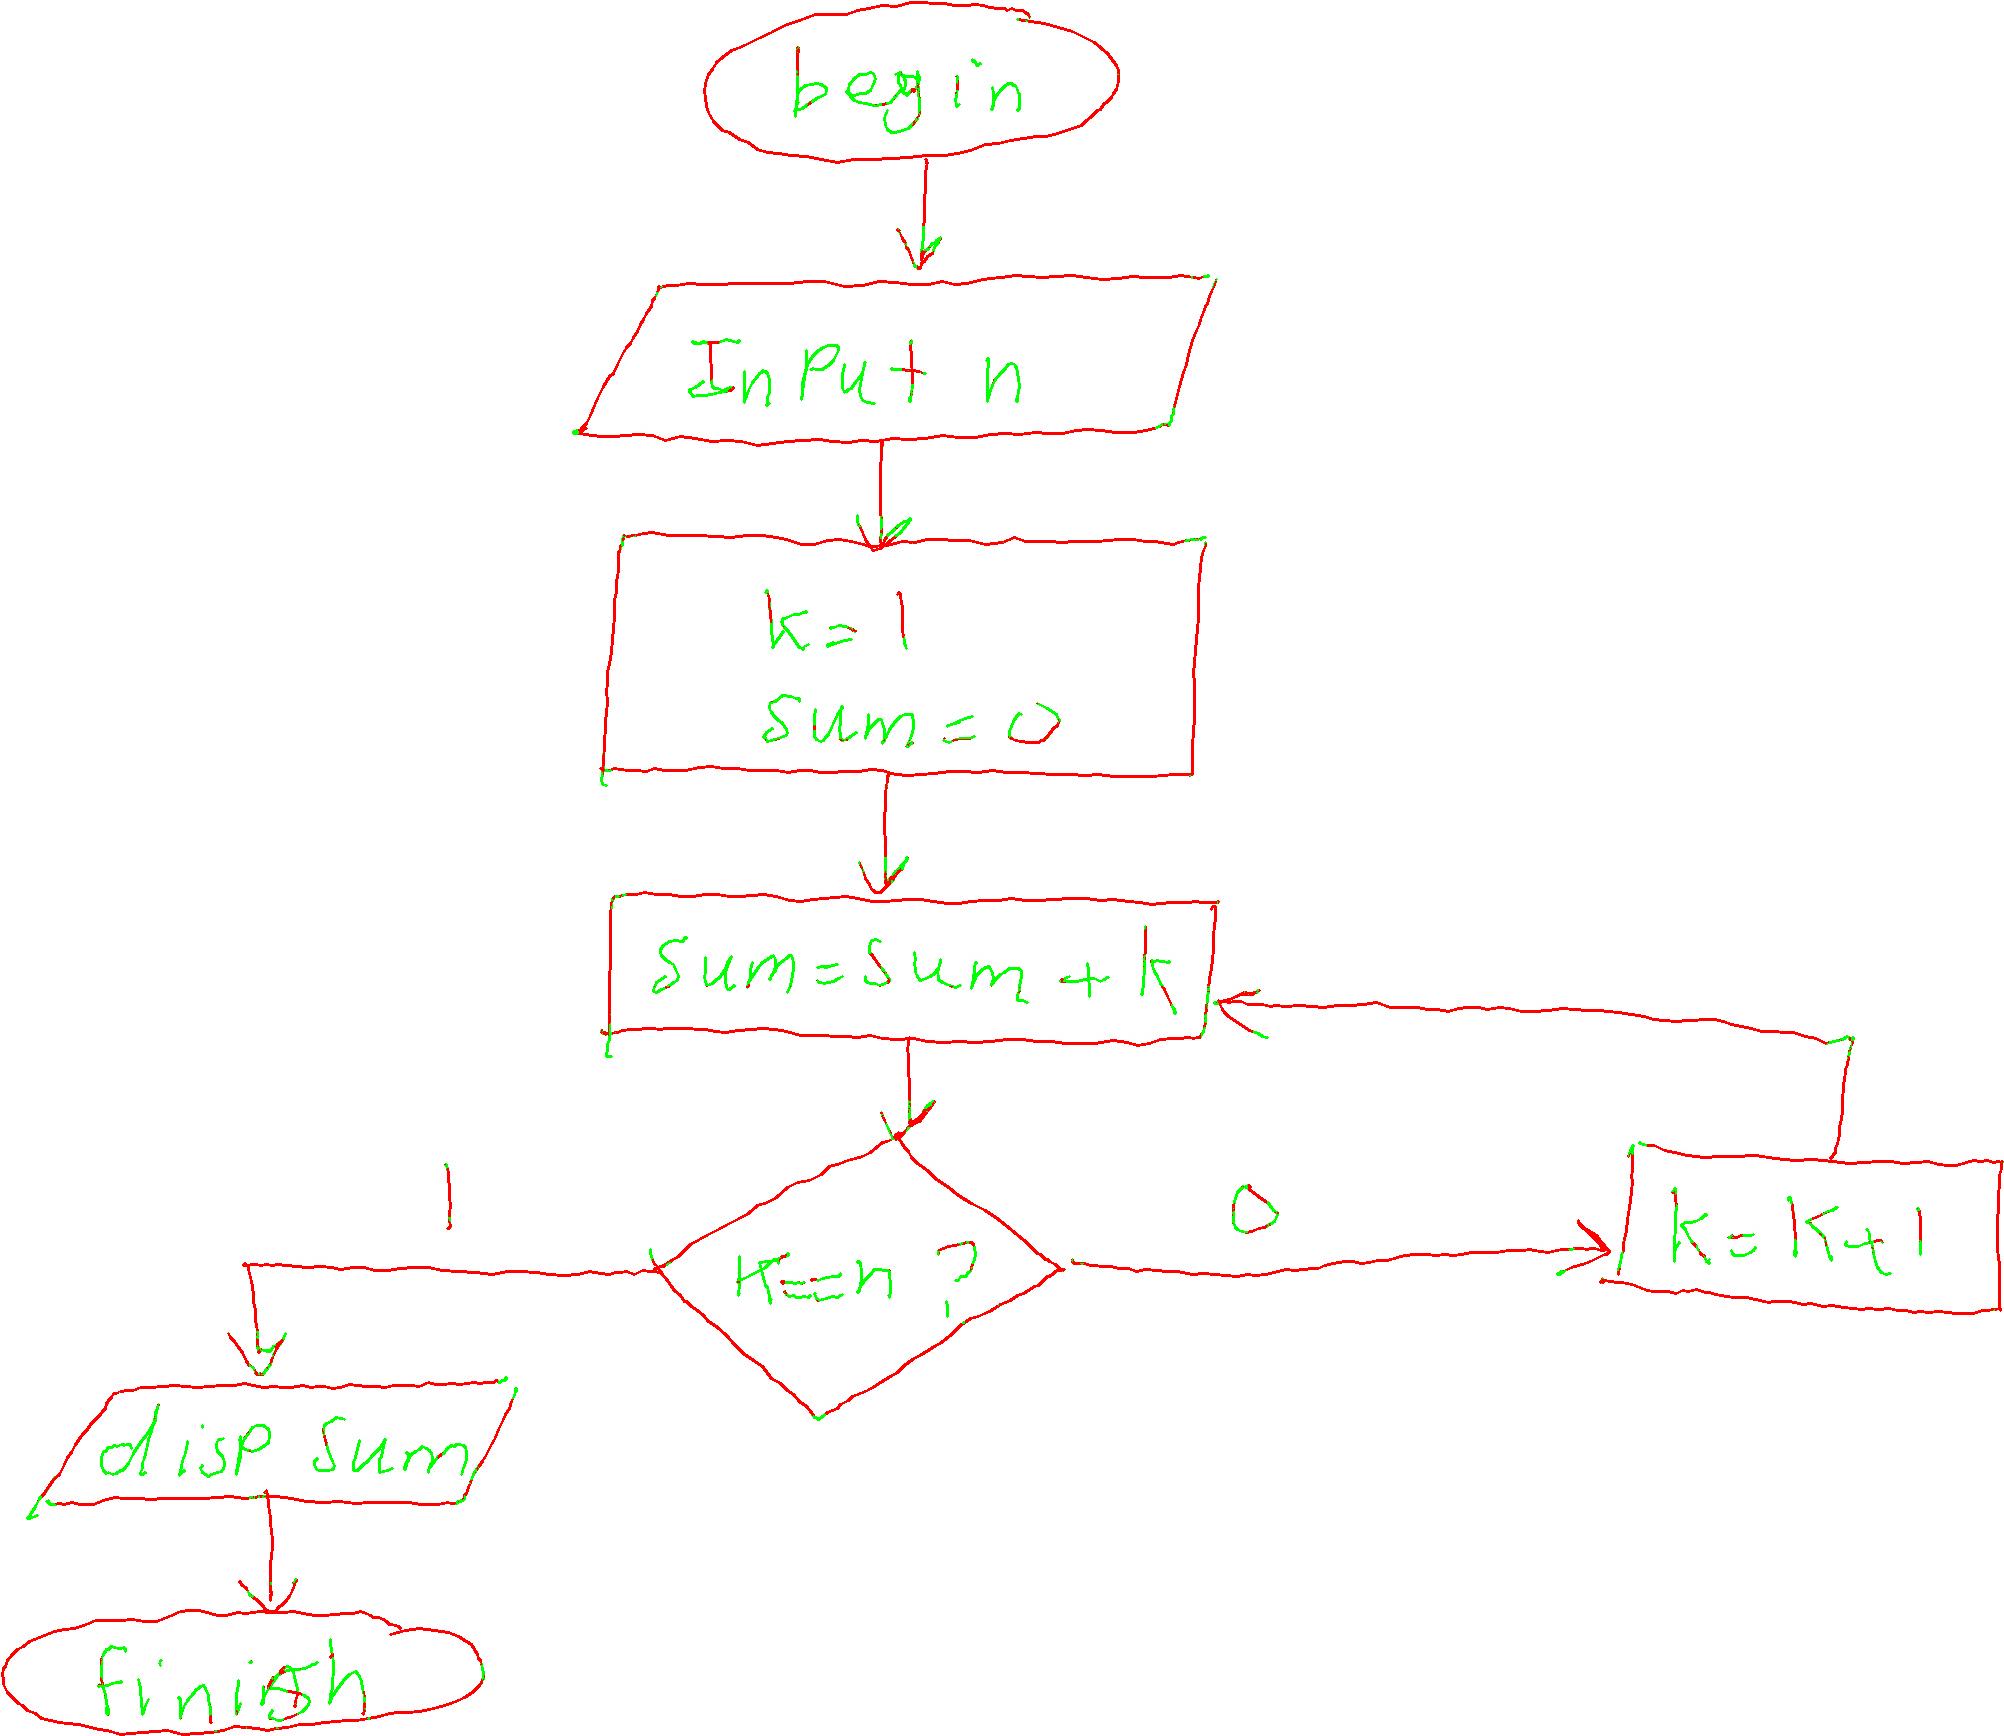 begin
Input n
k=1
sum=0
sum=sum+k
1
0
k==n?
k=k+1
disp sum
finish